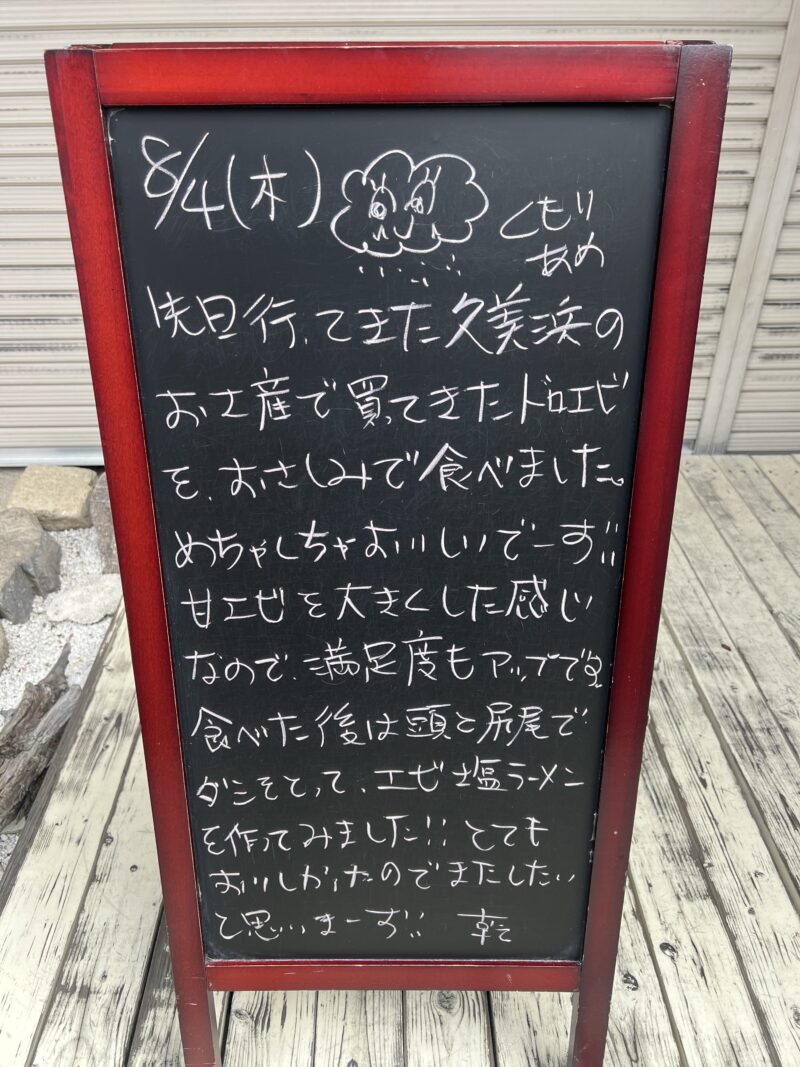 8/4(木)
くもり
あめ
先日行ってきた久美浜の
お土産で買ってきたドロエビ
を、おさしみで食べました。
めちゃくちゃおいしいでーす!!
甘エビを大きくした感じ
なので、満足度もアップです
食べた後は頭と尻尾で
ダシをとって、エビ塩ラーメン
を作ってみました!! とても
おいしかったのでまたしたい
と思いまーす!!